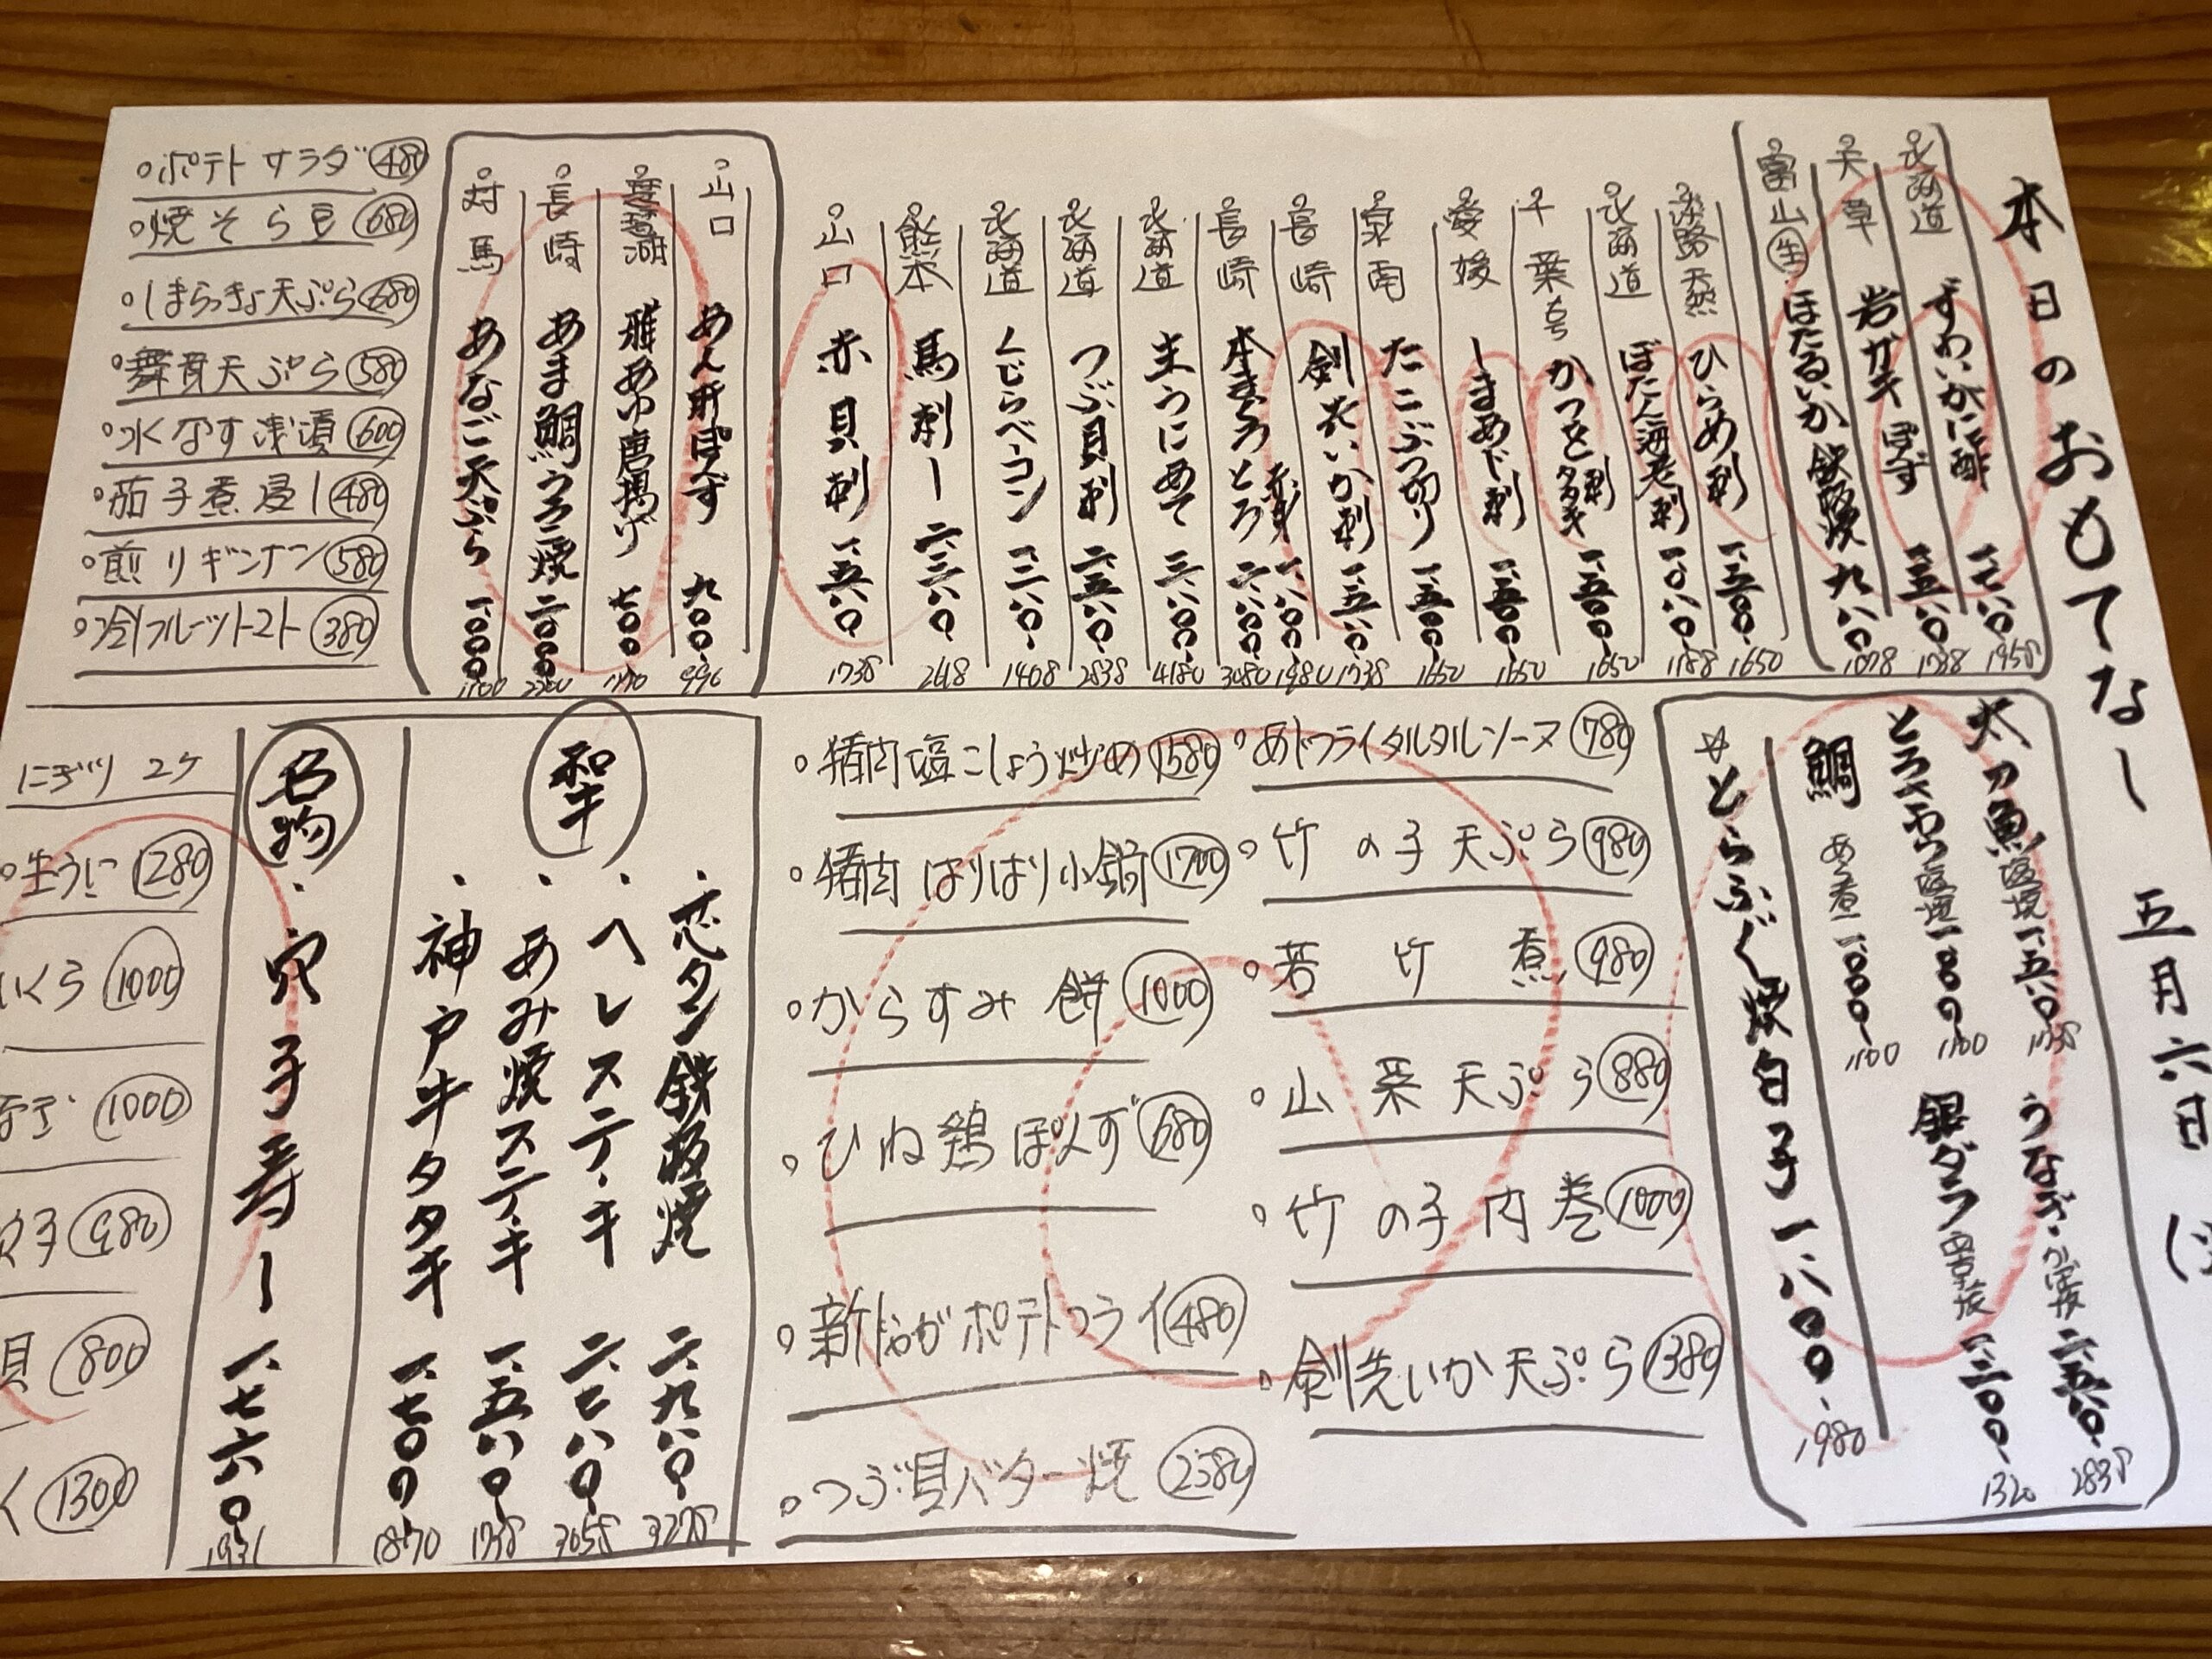 本日のおもてなし 五月六日
北海道 ずわいがに酢 一、七八〇 1958
天草 岩ガキぽず 一、五八〇 1738
富山 生 ほたるいか鉄板焼 九八〇 1078
淡路天然 ひらめ刺 一、五〇〇 1650
北海道 ぼたん海老刺 一、〇八〇 1188
千葉 かつを刺 タタキ 一、五〇〇 1650
愛媛 しまあじ刺 一、五〇〇 1650
泉南 たこぶつ切り 一、五〇〇 1650
長崎 剣先いか刺 一、五八〇 1738
赤身 一、八〇〇 1980
長崎 本まぐろとろ 二、八〇〇 3080
北海道 生うにあて 三、八〇〇 4180
北海道 つぶ貝刺 二、五八〇 2838
北海道 くじらベーコン 一、二八〇 1408
熊本 馬刺し 二、三八〇 2618
山口 赤貝刺 一、五八〇 1738
山口 あん肝ぽず 九〇〇 990
琵琶湖 稚あゆ唐揚げ 七〇〇
長崎 あま鯛うろこ焼 二、〇〇〇 2200
対馬 あなご天ぷら 一、〇〇〇 1100
ポテトサラダ 480
焼そら豆 680
しまらっきょ天ぷら 680
舞茸天ぷら 580
水なす浅漬 600
茄子煮浸し 480
煎りギンナン 580
冷フルーツトマト 380
太刀魚塩焼 一、五八〇 1738
うなぎ 二、五八〇 2838
とろさわら塩焼 一、〇〇〇 1100
銀ダラ 西京焼 一、二〇〇 1320
鯛 あら煮 一、〇〇〇 1100
☆とらふぐ焼白子 一、八〇〇 1980
あじフライタルタルソース 780
竹の子天ぷら 980
若竹煮 980
山菜天ぷら 880
竹の子肉巻 1000
剣先いか天ぷら 1380
猪肉塩こしょう炒め 1580
猪肉はりはり小鍋 1700
からすみ餅 1000
ひね鶏ぽんず 680
新じゃがポテトフライ 480
つぶ貝バター焼 2580
和牛
芯タン鉄板焼 二、九八〇 3278
ヘレステーキ 二、七八〇 3058
あみ焼ステーキ 一、五八〇 1738
神戸牛タタキ 一、七〇〇 1870
名物
穴子寿し 一、七六〇 1936
にぎり 2ケ
生うに 1280
いくら 1000
1000
穴子 980
貝 800
く 1300